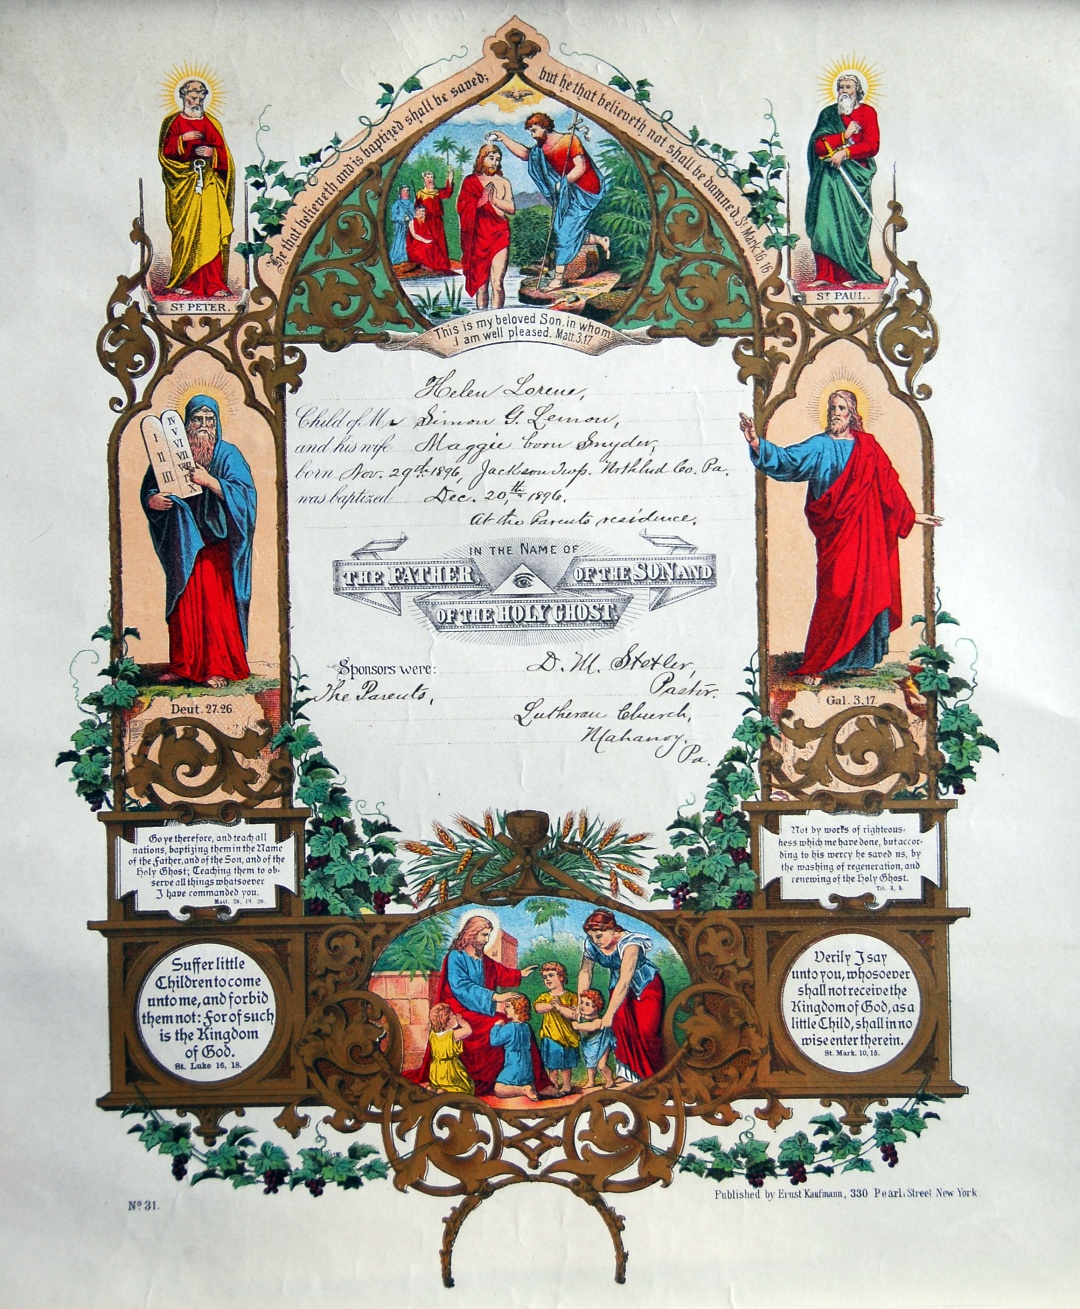 He that believeth and is baptized shall be saved;
but he that believeth not shall be damned. St. Mark 16, 16
ST PETER.
ST PAUL.
This is my beloved Son, in whom
I am well pleased. Matt. 3.17
Helen Lorene,
Child of Mr Simon G. Lemon,
and his wife Maggie born Snyder,
born Nov. 29th 1896, Jackson Twp. Nothlud Co. Pa.
was baptized Dec. 20,th 1896.
At the Parents residence.
IN THE NAME OF
THE FATHER, OF THE SON AND
OF THE HOLY GHOST.
Sponsors were:
The Parents,
D. M. Stetler,
Pastor.
Lutheran Church,
Mahanoy,
Pa.
I
II
III
IV
V
VI
VII
IX
X
Deut. 27.26.
Gal. 3.17.
Go ye therefore, and teach all
nations, baptizing them in the Name
of the Father, and of the Son, and of the
Holy Ghost; Teaching them to ob-
serve all things whatsoever
I have commanded you.
Matt. 28, 19. 20.
Not by works of righteous-
hess which me have done, but accor-
ding to his wercy he saved us, by
the washing of regeneration, and
renewing of the Holy Ghost.
Tit. 3, 5.
Suffer little
Children to come
unto me, and forbid
them not: for of such
is the Kingdom
of God.
St. Luke 16, 18.
Verily I say
unto you, whosoever
shall not receive the
Kingdom of God, as a
little Child, shall in no
wise enter therein.
St. Mark. 10, 15.
No 31.
Published by Ernst Kaufmann, 330 Pearl. Street New York